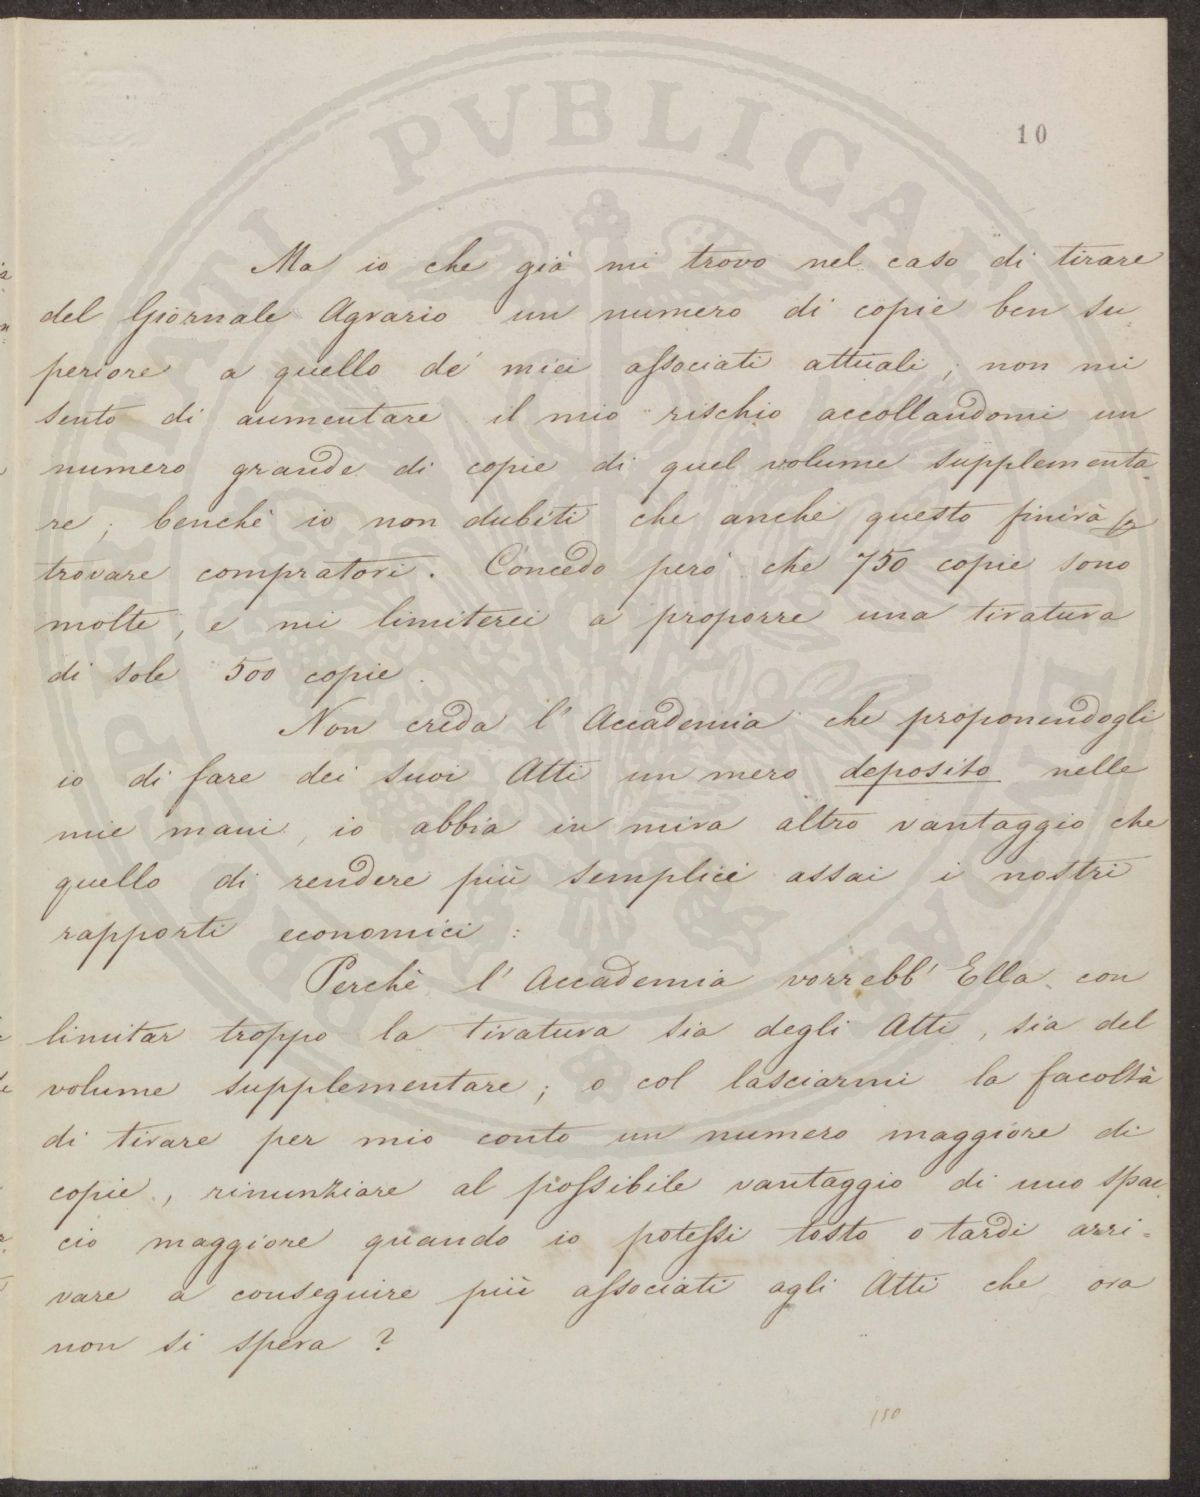 10
Ma io che già mi trovo nel caso di tirare
del Giornale Agrario un numero di copie ben su-
periore a quello de' miei associati attuali, non mi
sento di aumentare il mio rischio accollandomi un
numero grande di copie di quel volume supplementa-
re, benchè io non dubiti che anche questo finirà p
trovare compratori. Concedo però che 750 copie sono
molte, e mi limiterei a proporre una tiratura
di sole 500 copie.
Non creda l'Accademia che proponendogli
io di fare dei suoi Atti un mero deposito nelle
mie mani, io abbia in mira altro vantaggio che
quello di rendere più semplici assai i nostri
rapporti economici:
Perchè l'Accademia vorrebb'Ella con
limitar troppo la tiratura sia degli Atti, sia del
volume supplementare; o col lasciarmi la facoltà
di tirare per mio conto un numero maggiore di
copie, rinunziare al possibile vantaggio di uno spac-
cio maggiore quando io potessi tosto o tardi arri-
vare a conseguire più associati agli Atti che ora
non si spera?
150